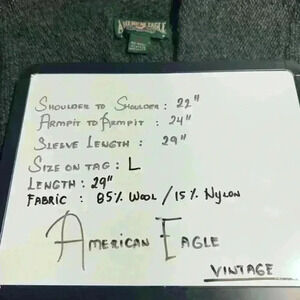 AMERICAN EAGLE
SHOULDER TO SHOULDER : 22"
ARMPIT TO ARMPIT : 24"
SLEEVE LENGTH : 29"
SIZE ON TAG : L
LENGTH : 29"
FABRIC : 85% WOOL / 15% NYLON
AMERICAN EAGLE
VINTAGE